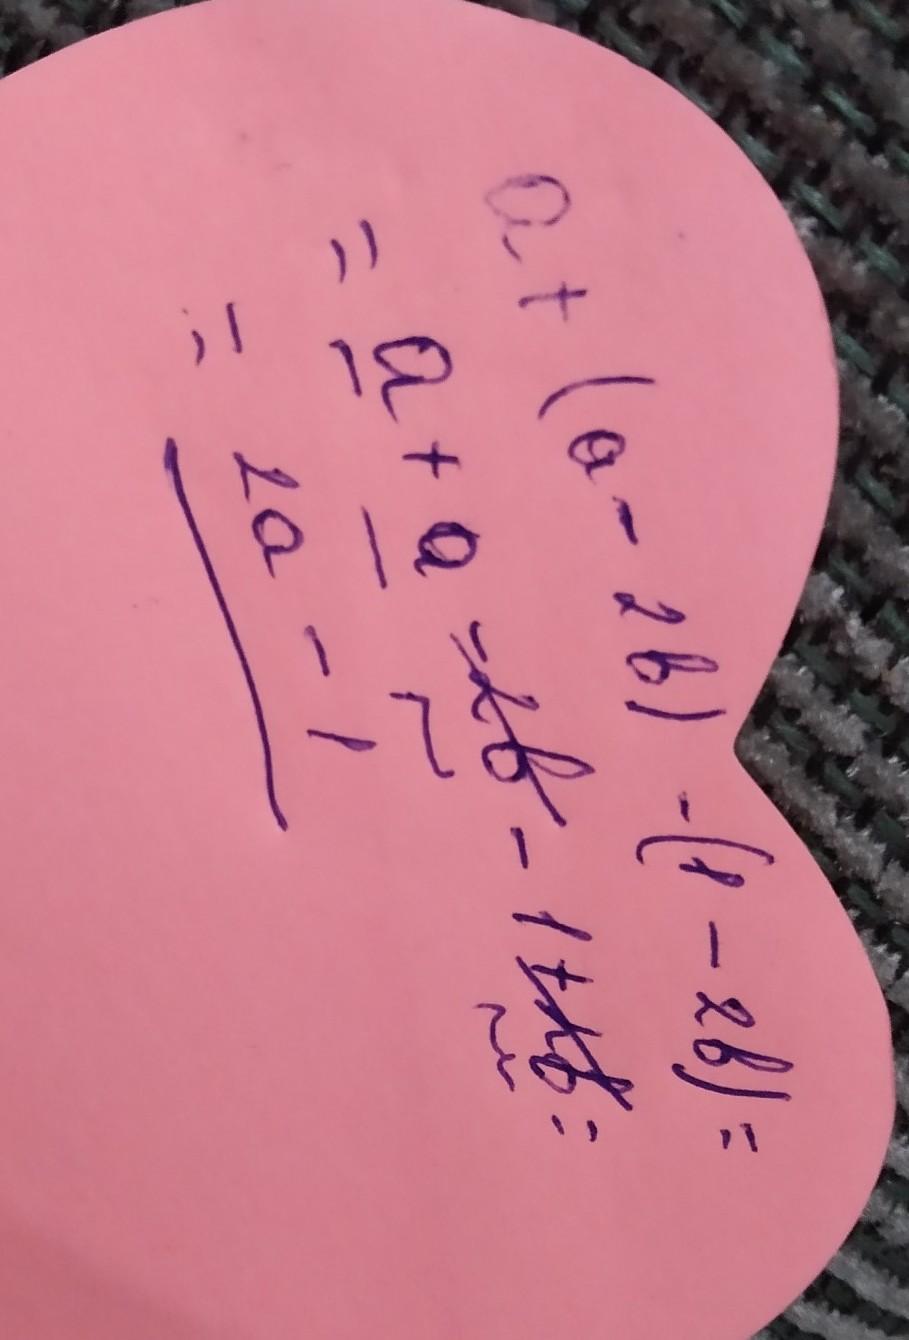 a + (a - 2b) - (1 - 2b) =
= a + a - 2b - 1 + 2b =
= 2a - 1